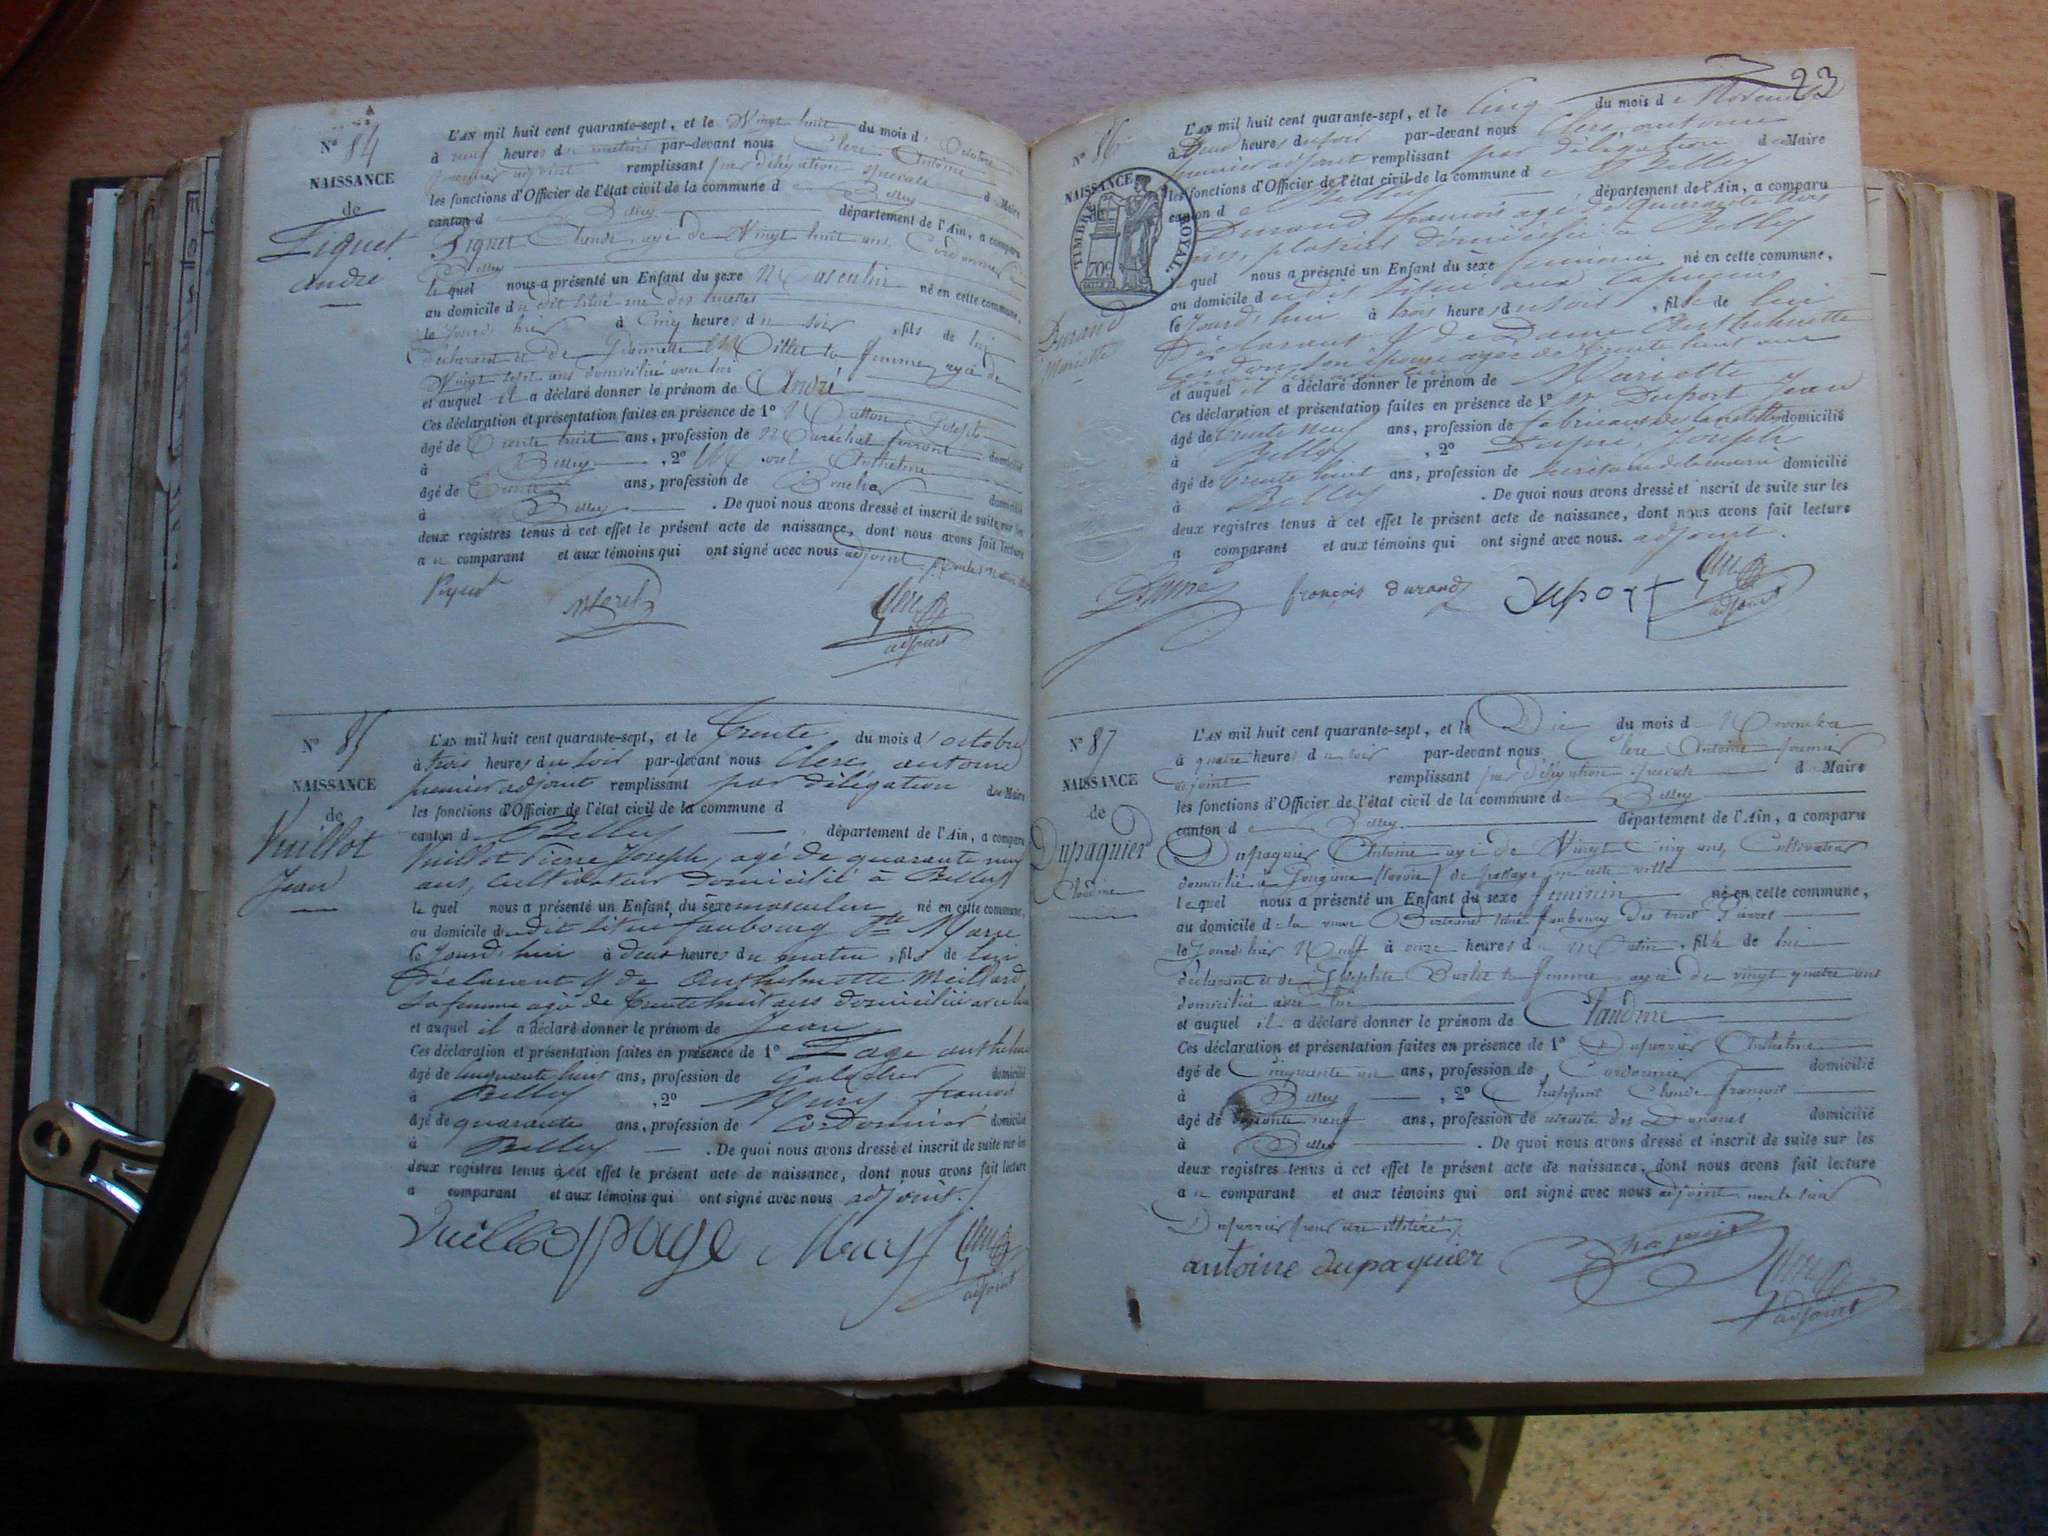 N° 84
NAISSANCE
de
André
L'AN mil huit cent quarante-sept, et le Vingt huit du mois d'Octobre
à neuf heures du matin par-devant nous Clerc Antoine
premier adjoint remplissant par délégation spéciale du Maire
les fonctions d'Officier de l'état civil de la commune de Belley
canton de Belley département de l'Ain, a comparu
Claude, agé de Vingt huit ans, Cordonnier
Belley
lequel nous a présenté un Enfant du sexe Masculin né en cette commune,
au domicile du dit situé rue des
le jourd'hier à Cinq heures du soir, fils de lui
déclarant et de Millet sa femme, agée de
Vingt sept ans domiciliée avec lui
et auquel il a déclaré donner le prénom de André
Ces déclaration et présentation faites en présence de 1° Joseph
âgé de Trente huit ans, profession de Maréchal ferrant domicilié
à Belley, 2° Moret Anthelme
âgé de Trente ans, profession de domicilié
à Belley. De quoi nous avons dressé et inscrit de suite sur les
deux registres tenus à cet effet le présent acte de naissance, dont nous avons fait lecture
au comparant et aux témoins qui ont signé avec nous adjoint
Moret
adjoint
N° 85
NAISSANCE
de
Vuillot
Jean
L'AN mil huit cent quarante-sept, et le Trente du mois d'octobre
à trois heures du soir par-devant nous Clerc antoine
premier adjoint remplissant par délégation du Maire
les fonctions d'Officier de l'état civil de la commune d
canton de Belley département de l'Ain, a comparu
Vuillot Pierre Joseph, agé de quarante neuf
ans, Cultivateur domicilié à Belley
lequel nous a présenté un Enfant du sexe masculin né en cette commune,
au domicile dudit situé faubourg Ste Marie
ce Jourd'hui à deux heures du matin, fils de lui
Déclarant & de Anthelmette Meillard
sa femme agé de trente huit ans domiciliée avec lui
et auquel il a déclaré donner le prénom de Jean
Ces déclaration et présentation faites en présence de 1° Page anthelme
âgé de cinquante huit ans, profession de domicilié
à Belley, 2° Meury françois
âgé de quarante ans, profession de Cordonnier domicilié
à Belley. De quoi nous avons dressé et inscrit de suite sur les
deux registres tenus à cet effet le présent acte de naissance, dont nous avons fait lecture
a comparant et aux témoins qui ont signé avec nous adjoint.
Vuillot page Meury
adjoint
23
N° 86
NAISSANCE
TIMBRE ROYAL
70c
Durand
Mariette
L'AN mil huit cent quarante-sept, et le Cinq du mois de Novembre
à heures du soir par-devant nous Clerc antoine
premier adjoint remplissant par délégation du Maire
les fonctions d'Officier de l'état civil de la commune de Belley
canton de Belley département de l'Ain, a comparu
Durand françois agé de quarante trois
ans, platrier domicilié à Belley
lequel nous a présenté un Enfant du sèxe féminin né en cette commune,
au domicile dudit situé aux Capucins
ce Jourd'hui à trois heures du soir, fille de lui
Déclarant & de Dame Anthelmette
agée de trente huit ans
et auquel il a déclaré donner le prénom de Mariette
Ces déclaration et présentation faites en présence de 1° Mr Duport Jean
âgé de trente neuf ans, profession de fabricant de domicilié
à Belley, 2° Dupré, Joseph
âgé de trente huit ans, profession de secrétaire de la mairie domicilié
à Belley. De quoi nous avons dressé et inscrit de suite sur les
deux registres tenus à cet effet le présent acte de naissance, dont nous avons fait lecture
a comparant et aux témoins qui ont signé avec nous. adjoint.
Dupré françois durand Duport
adjoint
N° 87
NAISSANCE
de
Dupaquier
Claudine
L'AN mil huit cent quarante-sept, et le Dix du mois d Novembre
à quatre heures du soir par-devant nous Clerc Antoine premier
adjoint remplissant par délégation spéciale du Maire
les fonctions d'Officier de l'état civil de la commune de Belley
canton de Belley département de l'Ain, a comparu
Dupaquier Antoine agé de Vingt Cinq ans, Cultivateur
domicilié à (Savoie) de passage en cette ville
lequel nous a présenté un Enfant du sexe feminin né en cette commune,
au domicile de la veuve Bertrand situé faubourg des trois Pierres
le Jourd'hier Neuf à onze heures du Matin, fille de lui
déclarant et de Josephte sa femme agée de vingt quatre ans
domiciliée avec lui
et auquel il a déclaré donner le prénom de Claudine
Ces déclaration et présentation faites en présence de 1° Anthelme
âgé de Cinquante un ans, profession de Cordonnier domicilié
à Belley, 2° Claude françois
âgé de neuf ans, profession de retraité des Douanes domicilié
à Belley. De quoi nous avons dressé et inscrit de suite sur les
deux registres tenus à cet effet le présent acte de naissance, dont nous avons fait lecture
au comparant et aux témoins qui ont signé avec nous adjoint
pour être illitéré
antoine dupaquier
adjoint